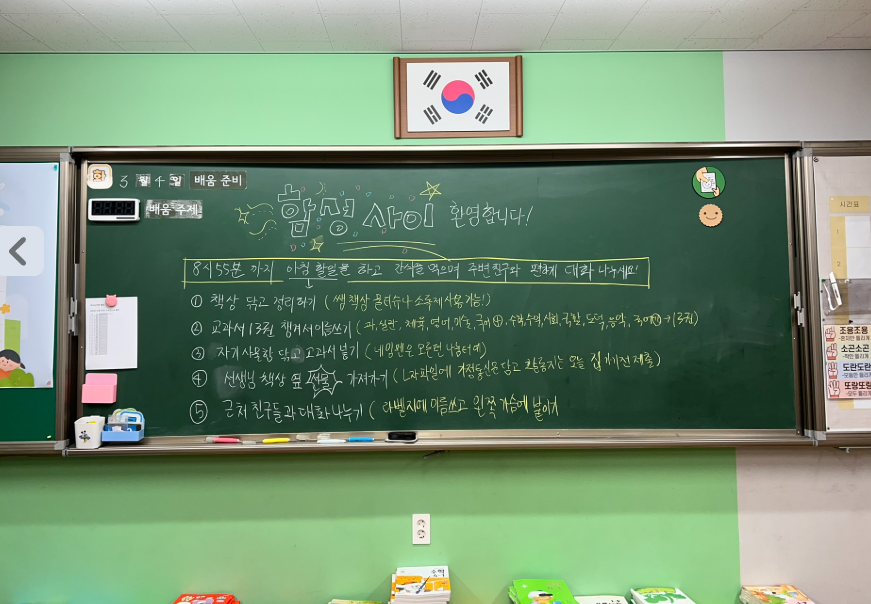 화
3 월 4 일 배움 준비
배움 주제
함성사이 환영합니다!
8시 55분 까지 아침 할일을 하고 간식을 먹으며 주변 친구와 편하게 대화 나누세요!
① 책상 닦고 정리하기 (쌤 책상 물티슈나 소독제 사용가능!)
② 교과서 13권 챙겨서 이름쓰기 (과, 실관, 체육, 영어, 미술, 수학, 수익, 사회, 국활, 도덕, 음악, → 13권)
③ 자기 사물함 닦고 교과서 넣기
④ 선생님 책상 옆 선물 가져가기 (L자파일에 가정통신문 담고 오늘 집 가기전 제출)
⑤ 근처 친구들과 대화 나누기 (라벨지에 이름쓰고 왼쪽 가슴에 붙이기
시간표
1
2
조용조용
소곤소곤
도란도란
또랑또랑
수학